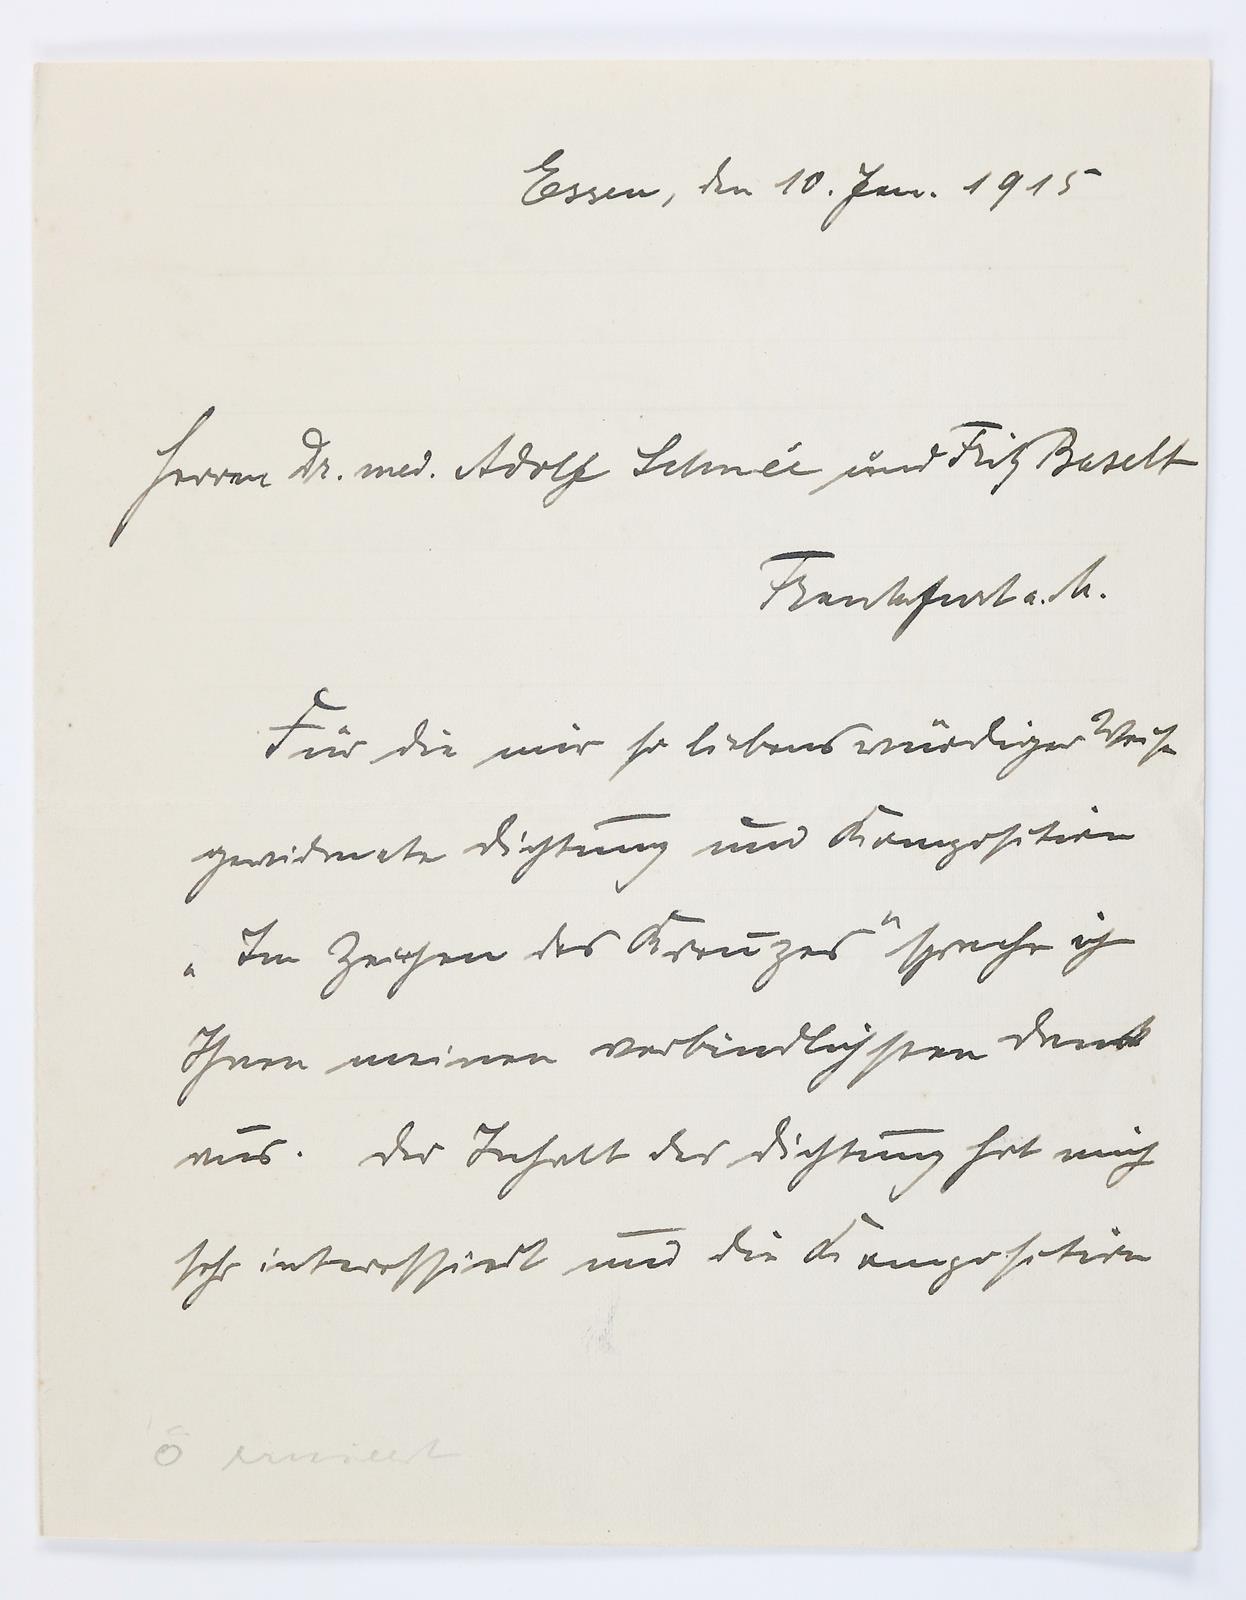 Essen, den 10. Jan. 1915
Herren Dr. med. Adolf Schmée und Fritz Baselt
Frankfurt a. M.
Für die mir so liebenswürdiger Weise
gewidmete Dichtung und Komposition
„Im Zeichen des Kreuzes" spreche ich
Ihnen meinen verbindlichsten Dank
aus. Der Inhalt der Dichtung hat mich
sehr interessiert und die Komposition